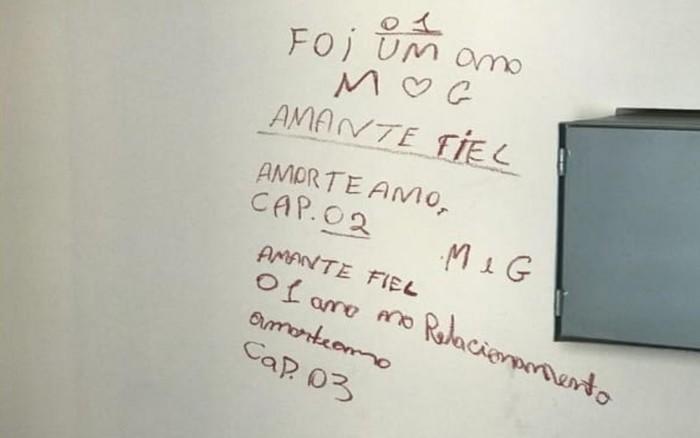 01
FOI UM ano
M ♡ G
AMANTE FIEL
AMORTEAMO,
CAP. 02
M e G
AMANTE FIEL
01 ano no Relacionamento
amorteamo
CaP. 03